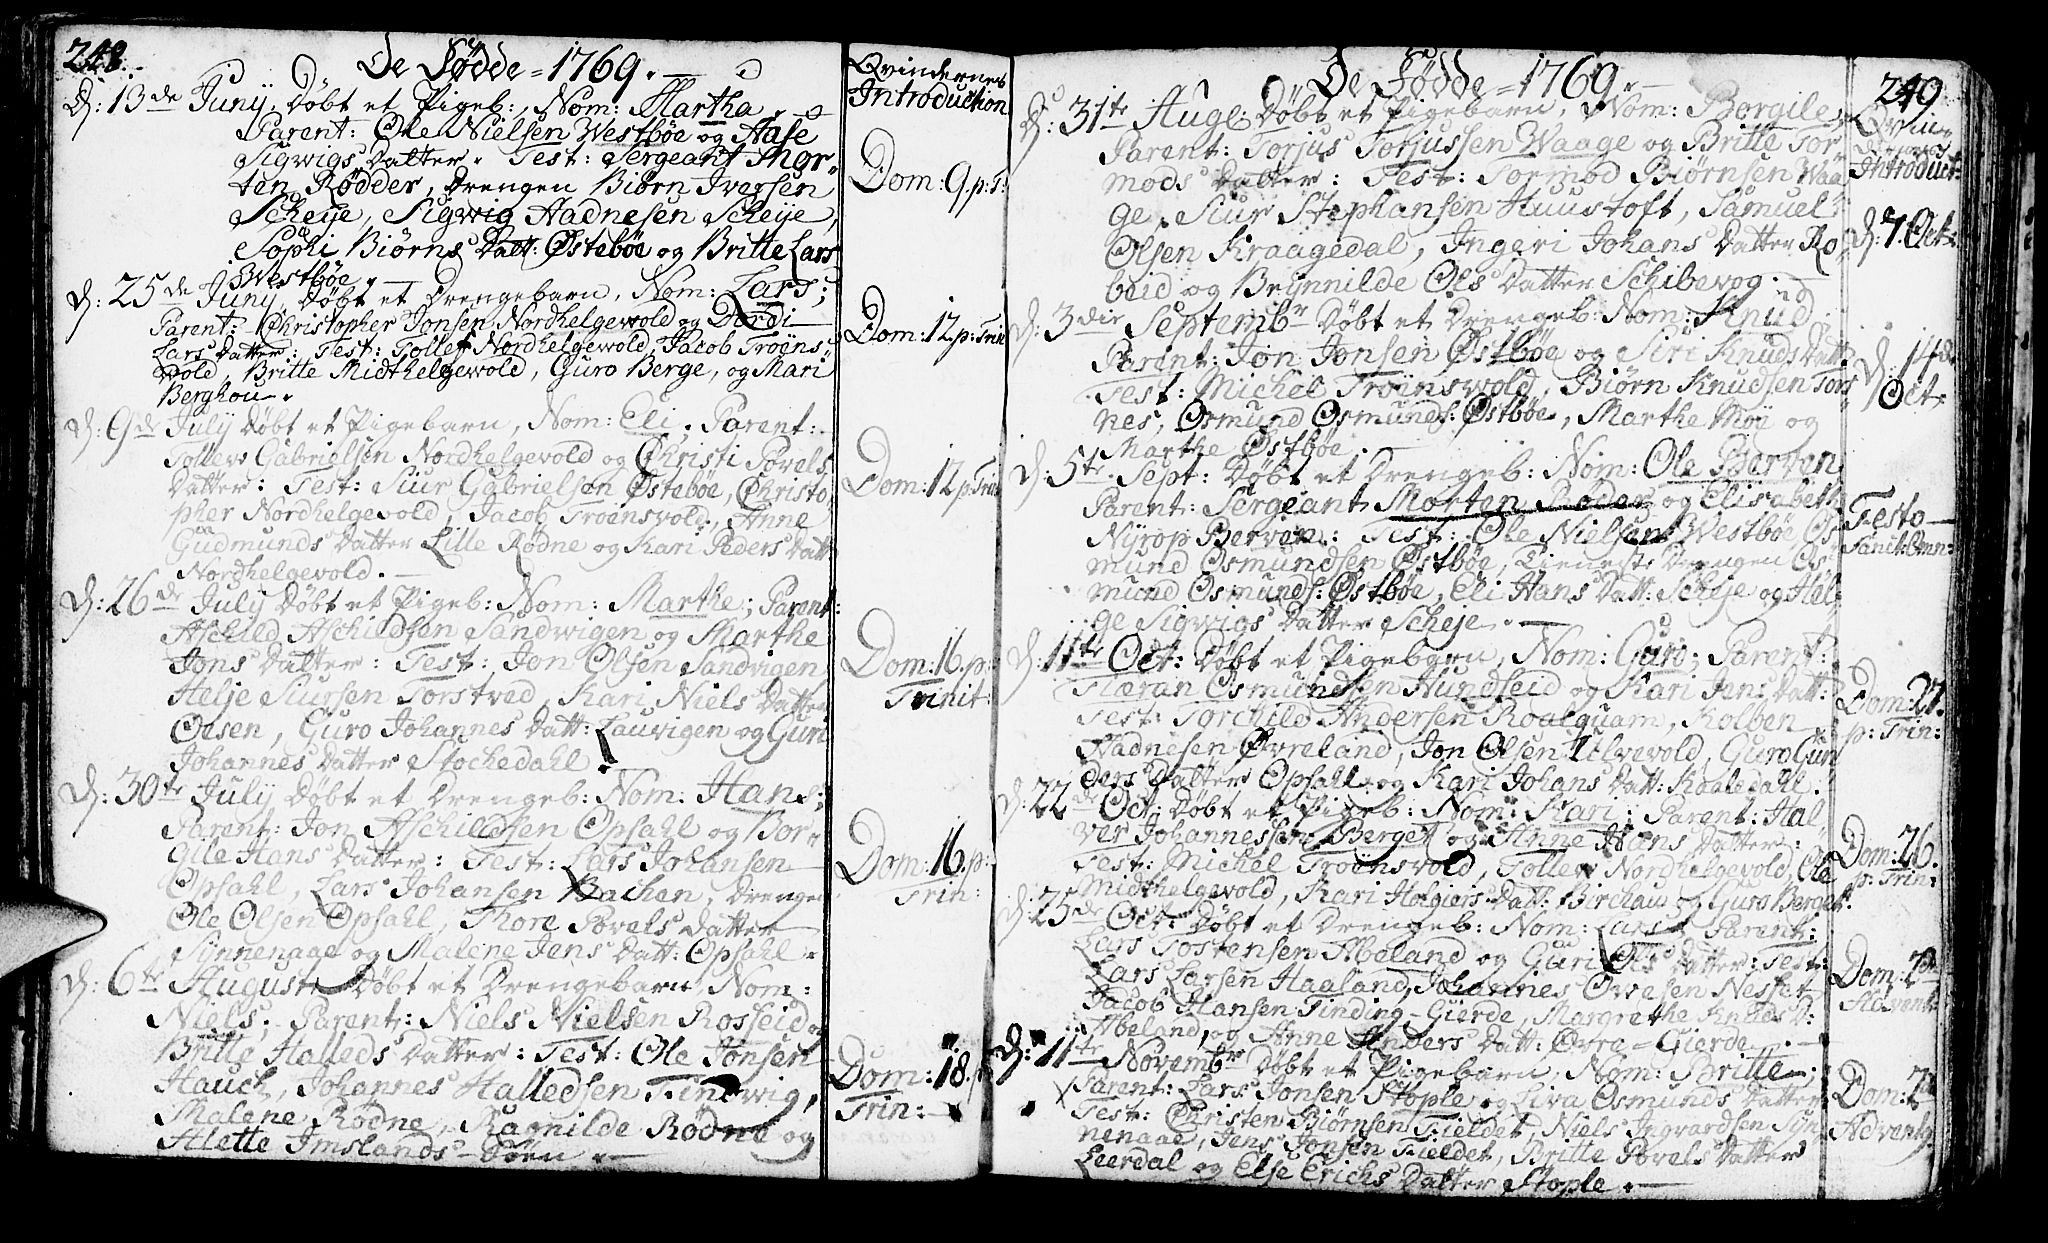 248.
De Fødde = 1769.
Qvindernes
Introduction
D: 13de Junÿ, Døbt et Pigeb:, Nom: Martha
Parent: Ole Nielsen Westbøe og Aase
Sigwigs Datter. Test: Sergeant Mor-
ten Rødder, Drengen Biørn Iversen
Scheije, Sigwig Aadnesen Scheije,
Sophi Biørns Datt: Østebøe og Britte Lars
Westbøe.
Dom: 9 p: T:
D: 25de Junÿ, Døbt et Drengebarn, Nom: Lars;
Parent: Christopher Jonsen Nordhelgewold og Dordi
Lars Datter: Test: Tollef Nordhelgewold, Jacob Trøens-
wold, Britte Midthelgewold, Guro Berge, og Mari
Berghou.
Dom: 12 p: Trin
D: 9de Julÿ Døbt et Pigebarn, Nom: Eli. Parent:
Tollew Gabrielsen Nordhelgevold og Christi Povels
Datter: Test: Siur Gabrielsen Østebøe, Christo-
pher Nordhelgevold, Jacob Troensvold, Anne
Gudmunds Datter Lille Rødne og Kari Peders Datt:
Nordhelgevold.
Dom: 12 p: Trin
D: 26de Julÿ Døbt et Pigeb: Nom: Marthe; Parent:
Aschild Aschildsen Sandwigen og Marthe
Jons Datter: Test: Jon Olsen Sandvigen
Helje Siursen Torstved, Kari Niels Datter
Ølsen, Guro Johannes Datt: Lauvigen og Guri
Johannes Datter Stochedahl.
Dom: 16. p:
Trinit:
D: 30te Julÿ Døbt et Drengeb: Nom: Hans;
Parent: Jon Aschildsen Opsahl og Bor-
gile Hans Datter: Test: Lars Johansen
Opsahl, Lars Johansen Bachen, Drengen
Ole Olsen Opsahl, Thore Povels Datter
Sÿnnenaae og Malene Jens Datt: Opsahl.
Dom: 16. p:
Trin:
D: 6te August Døbt et Drengebarn Nom:
Niels; Parent: Niels Nielsen Rosseid og
Britte Halleds Datter: Test: Ole Jonsen
Hauch, Johannes Halledsen Findwig,
Malene Rødne, Ragnilde Rødne og
Alette Imslands-Søen.
Dom: 18. p
Trin:
249
De Fødde = 1769.
Qvin-
dernes
Introduct:
D: 31te Aug: Døbt et Pigebarn, Nom: Borgile,
Parent: Torjus Torjussen Waage og Britte Tor-
mods Datter: Test: Tormod Biørnsen Waa-
ge, Siur Stephansen Huustoft, Samuel
Olsen Kraagedal, Ingeri Johans Datter Ro-
beid og Brÿnnilde Ols Datter Schibevog.
D: 7. Oct:
D: 3die Septembr Døbt et Drengeb: Nom: Knud
Parent: Jon Jonsen Østbøe og Siri Knuds Datt:
Test: Michel Trøenswold, Biørn Knudsen Tors-
nes, Osmund Osmunds: Østbøe, Marthe Moe og
Marthe Østbøe.
D: 14de
Oct:
D: 5te Sept: Døbt et Drengeb: Nom: Ole Berven
Parent: Sergeant Morten Røder og Elisabeth
Nÿrop Berven: Test: Ole Nielsen Westbøe, Os-
mund Osmundsen Østbøe, Tieneste Drengen Os-
mund Osmunds: Østbøe, Eli Hans Datt: Scheje og Hel-
ge Sigwigs Datter Scheje.
Festo
Sanct: Omn:
D: 11te Oct: Døbt et Pigebarn, Nom: Guro; Parent:
Tiæran Osmundsen Hundseid og Kari Jens Datt:
Test: Torchild Andersen Roalquam, Kolben
Aadnesen Øvreland, Jon Olsen Ulvevold, Guro Gun-
ders Datter Opsahl og Kari Johans Datt: Kaaledahl.
Dom: 21.
p: Trin:
D: 22de Oct: Døbt et Pigeb: Nom: Kari; Parent: Hal-
ver Johannessen Berget og Anne Hans Datter:
Test: Michel Trøensvold, Tollev Nordhelgevold, Ole
Midthelgevold, Kari Holgiers Datt: Birchau og Guro Berget.
Dom: 26.
p: Trin:
D: 25de Oct: Døbt et Drengeb: Nom: Lars. Parent:
Lars Tostensen Abeland og Guri Ols Datter: Test:
Lars Larsen Haaland, Johannes Owesen Nesset
Jacob Hansen Tinding-Gierde, Margrethe Knuds D:
Abeland, og Anne Anders Datt: Øvre-Gierde.
Dom: 2de
Advent:
D: 11te Novembr Døbt et Pigebarn, Nom: Britte;
Parent: Lars Jonsen Stople og Liva Osmunds Datter
Test: Christen Biørnsen Fieldet, Niels Ingvardsen Sÿn-
nenaae, Jens Jonsen Fieldet, Britte Povels Datter
Leerdal og Else Erichs Datter Stople.
Dom: 2de
Advent: